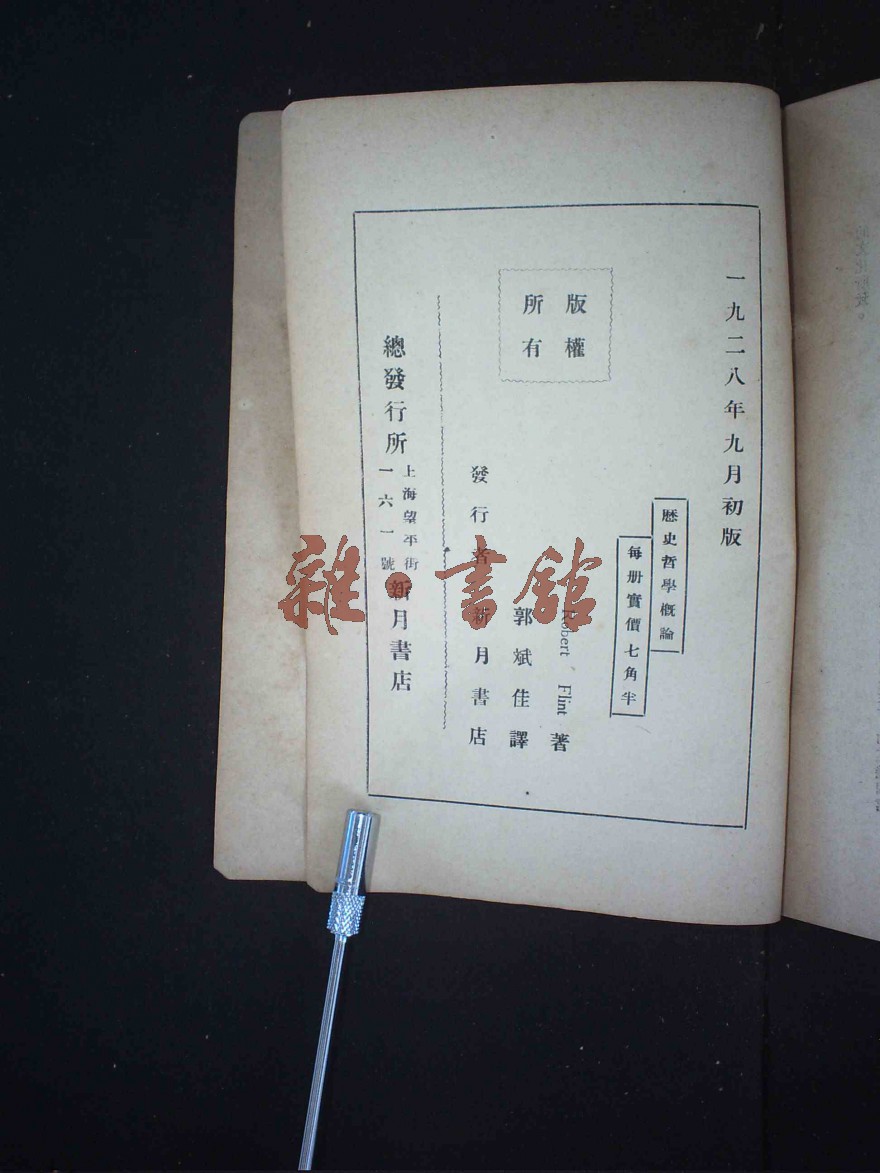 一九二八年九月初版
歷史哲學概論
每册實價七角半
版權
所有
Robert Flint 著
郭斌佳譯
發行者 新月書店
總發行所 上海望平街一六一號 新月書店
雜·書館